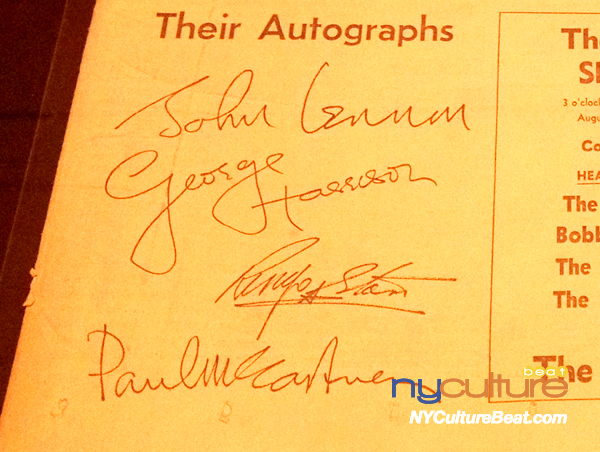 Their Autographs
John Lennon
George Harrison
Ringo Starr
Paul McCartney
Th
S
3 o'cloc
Augu
Co
HEA
The
Bobb
The
The
The
beat
nyculture
NYCultureBeat.com